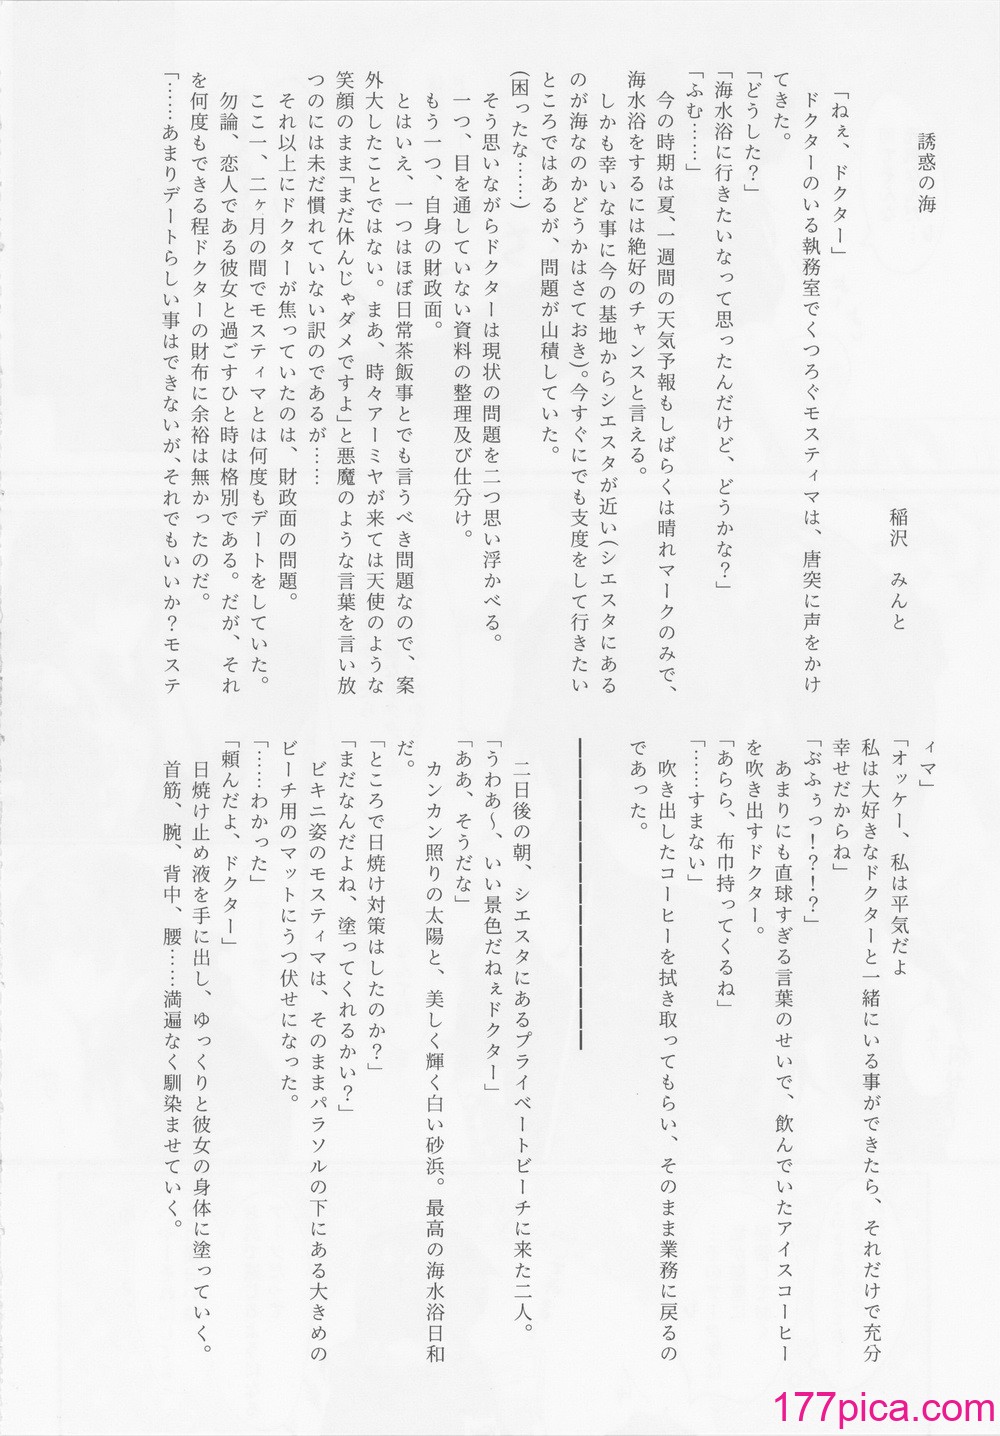 誘惑の海
稲沢　みんと
「ねぇ、ドクター」
ドクターのいる執務室でくつろぐモスティマは、唐突に声をかけ
てきた。
「どうした？」
「海水浴に行きたいなって思ったんだけど、どうかな？」
「ふむ……」
今の時期は夏、一週間の天気予報もしばらくは晴れマークのみで、
海水浴をするには絶好のチャンスと言える。
しかも幸いな事に今の基地からシエスタが近い(シエスタにある
のが海なのかどうかはさておき)。今すぐにでも支度をして行きたい
ところではあるが、問題が山積していた。
(困ったな……)
そう思いながらドクターは現状の問題を二つ思い浮かべる。
一つ、目を通していない資料の整理及び仕分け。
もう一つ、自身の財政面。
とはいえ、一つはほぼ日常茶飯事とでも言うべき問題なので、案
外大したことではない。まあ、時々アーミヤが来ては天使のような
笑顔のまま「まだ休んじゃダメですよ」と悪魔のような言葉を言い放
つのには未だ慣れていない訳のであるが……
それ以上にドクターが焦っていたのは、財政面の問題。
ここ一、二ヶ月の間でモスティマとは何度もデートをしていた。
勿論、恋人である彼女と過ごすひと時は格別である。だが、それ
を何度もできる程ドクターの財布に余裕は無かったのだ。
「……あまりデートらしい事はできないが、それでもいいか？モステ
ィマ」
「オッケー、私は平気だよ
私は大好きなドクターと一緒にいる事ができたら、それだけで充分
幸せだからね」
「ぶふぅっ！？！？」
あまりにも直球すぎる言葉のせいで、飲んでいたアイスコーヒー
を吹き出すドクター。
「あらら、布巾持ってくるね」
「……すまない」
吹き出したコーヒーを拭き取ってもらい、そのまま業務に戻るの
であった。
二日後の朝、シエスタにあるプライベートビーチに来た二人。
「うわあ～、いい景色だねぇドクター」
「ああ、そうだな」
カンカン照りの太陽と、美しく輝く白い砂浜。最高の海水浴日和
だ。
「ところで日焼け対策はしたのか？」
「まだなんだよね、塗ってくれるかい？」
ビキニ姿のモスティマは、そのままパラソルの下にある大きめの
ビーチ用のマットにうつ伏せになった。
「……わかった」
「頼んだよ、ドクター」
日焼け止め液を手に出し、ゆっくりと彼女の身体に塗っていく。
首筋、腕、背中、腰……満遍なく馴染ませていく。
177pica.com